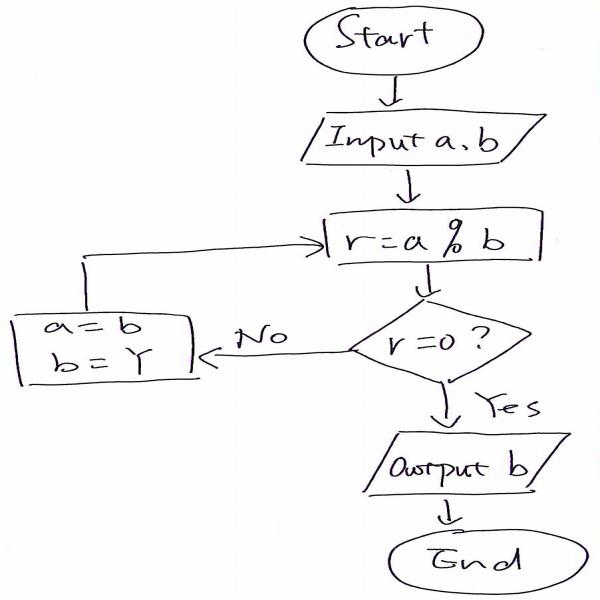 Start
Input a, b
r=a % b
r=0?
No
a=b
b=r
Yes
Output b
End